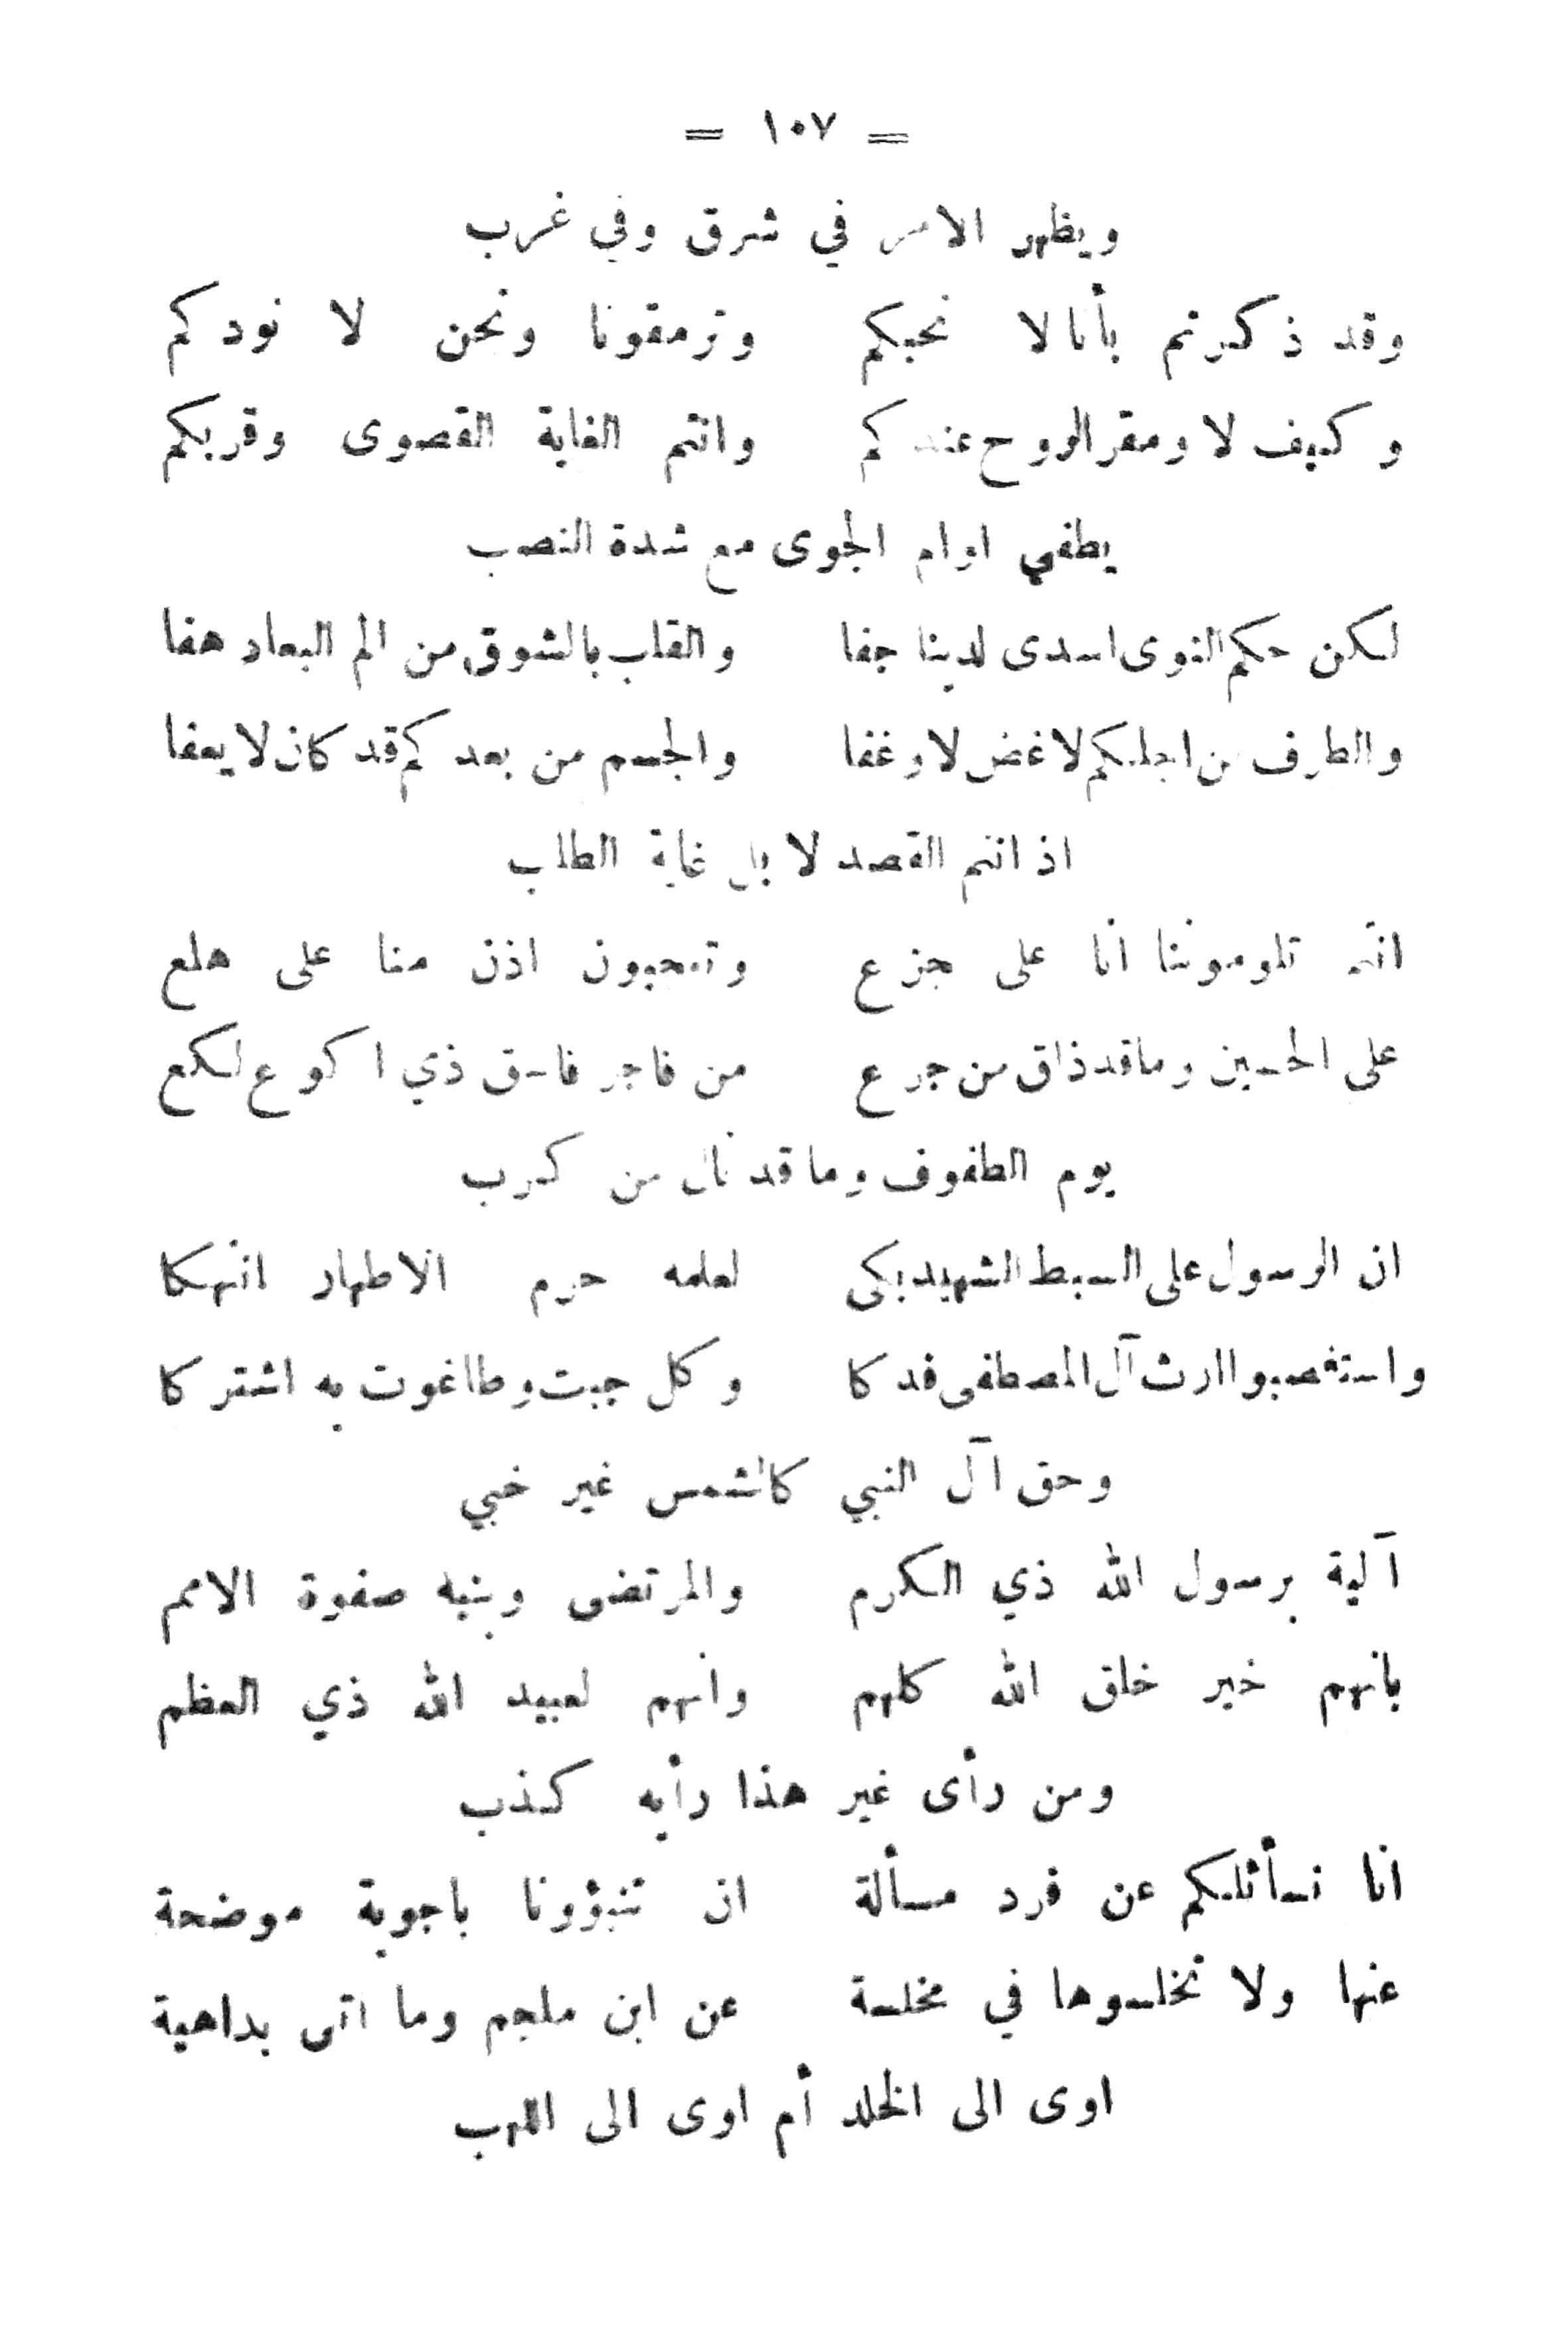 = ١٠٧ =
ويظهر الامر في شرق وفي غرب
وقد ذكرتم بأنا لا نحبكم وترمقونا ونحن لا نودكم
وكيف لا ومقر الروح عندكم وانتم الغاية القصوى وقربكم
يطفي اوام الجوى مع شدة النصب
لكن حكم النوى اسدى لدينا جفا والقلب بالشوق من الم البعاد هفا
والطرف من اجلكم لا غض لا وغفا والجسم من بعدكم قد كان لا يعفا
اذ انتم القصد لا بل غاية الطلب
انتم تلوموننا انا على جزع وتعجبون اذن منا على هلع
على الحسين وما قد ذاق من جرع من فاجر فاسق ذي اكوع لكع
يوم الطفوف وما قد نال من كرب
ان الرسول على السبط الشهيد بكى لعلمه حرم الاطهار انتهكا
واستغصبوا ارث آل المصطفى فدكا وكل جبت وطاغوت به اشتركا
وحق آل النبي كالشمس غير خبي
آلية برسول الله ذي الكرم والمرتضى وبنيه صفوة الامم
بانهم خير خلق الله كلهم وانهم لعبيد الله ذي العظم
ومن رأى غير هذا رأيه كذب
انا نسأئلكم عن فرد مسألة ان تنبؤونا باجوبة موضحة
عنها ولا تخلسوها في مخلسة عن ابن ملجم وما اتى بداهية
اوى الى الخلد أم اوى الى اللهب